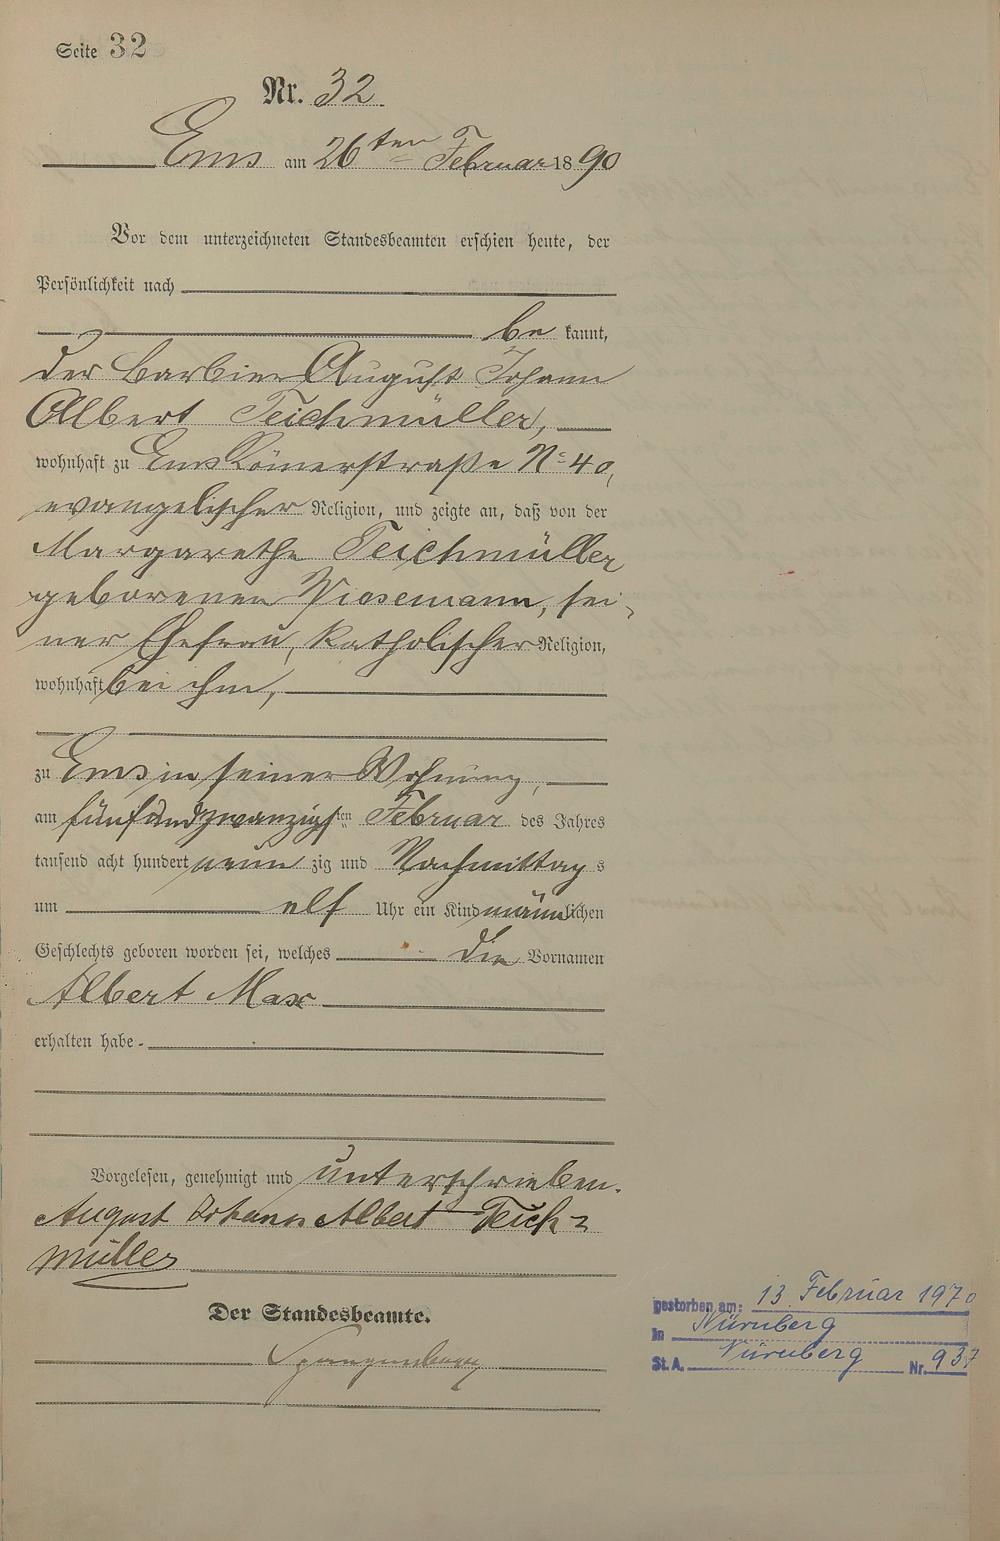 Seite 32
Nr. 32
Ems am 26ten Februar 1890
Vor dem unterzeichneten Standesbeamten erschien heute, der
Persönlichkeit nach
be kannt,
der Barbier August Johann
Albert Teichmüller,
wohnhaft zu Ems Römerstraße No 40,
evangelischer Religion, und zeigte an, daß von der
Margarethe Teichmüller
geborenen Wiesemann, sei-
ner Ehefrau, katholischer Religion,
wohnhaft bei ihm,
zu Ems in seiner Wohnung,
am fünfundzwanzigsten Februar des Jahres
tausend acht hundert neun zig und Nachmittag s
um elf Uhr ein Kind männlichen
Geschlechts geboren worden sei, welches die Vornamen
Albert Max
erhalten habe.
Vorgelesen, genehmigt und unterschrieben.
August Johann Albert Teich-
müller
Der Standesbeamte.
Spangenberg
gestorben am: 13. Februar 1970
in Nürnberg
St.A. Nürnberg Nr. 937